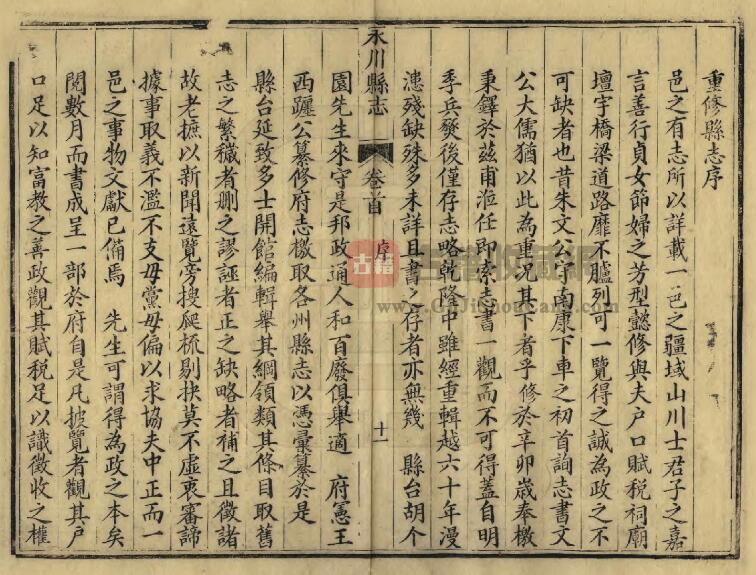 重修縣志序
邑之有志所以詳載一邑之疆域山川士君子之嘉
言善行貞女節婦之芳型懿修與夫戶口賦稅祠廟
壇宇橋梁道路靡不臚列可一覽得之誠為政之不
可缺者也昔朱文公守南康下車之初首詢志書文
公大儒猶以此為急況其下者乎修於辛卯歲奉檄
秉鐸於茲甫涖任即索志書一觀而不可得蓋自明
季兵燹後僅存志略乾隆中雖經重輯越六十年漫
漶殘缺殊多未詳且書之存者亦無幾 縣台胡个
永川縣志 卷首 序 十一
園先生來守是邦政通人和百廢俱舉適 府憲王
西躔公纂修府志檄取各州縣志以憑彙纂於是
縣台延致多士開館編輯舉其綱領類其條目取舊
志之繁穢者刪之謬誣者正之缺略者補之且徵諸
故老摭以新聞遠覽旁搜爬梳剔抉莫不虛衷審諦
據事取義不濫不支毋黨毋偏以求協夫中正而一
邑之事物文獻已備焉 先生可謂得為政之本矣
閱數月而書成呈一部於府自是凡披覽者觀其戶
口足以知富教之善政觀其賦稅足以識徵收之權
古籍
古籍收藏網
www.GuJiShouCang.com